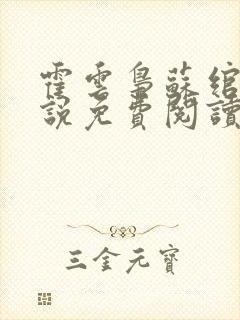 霍雲梟蘇綰
說免費閱讀
三金元寶